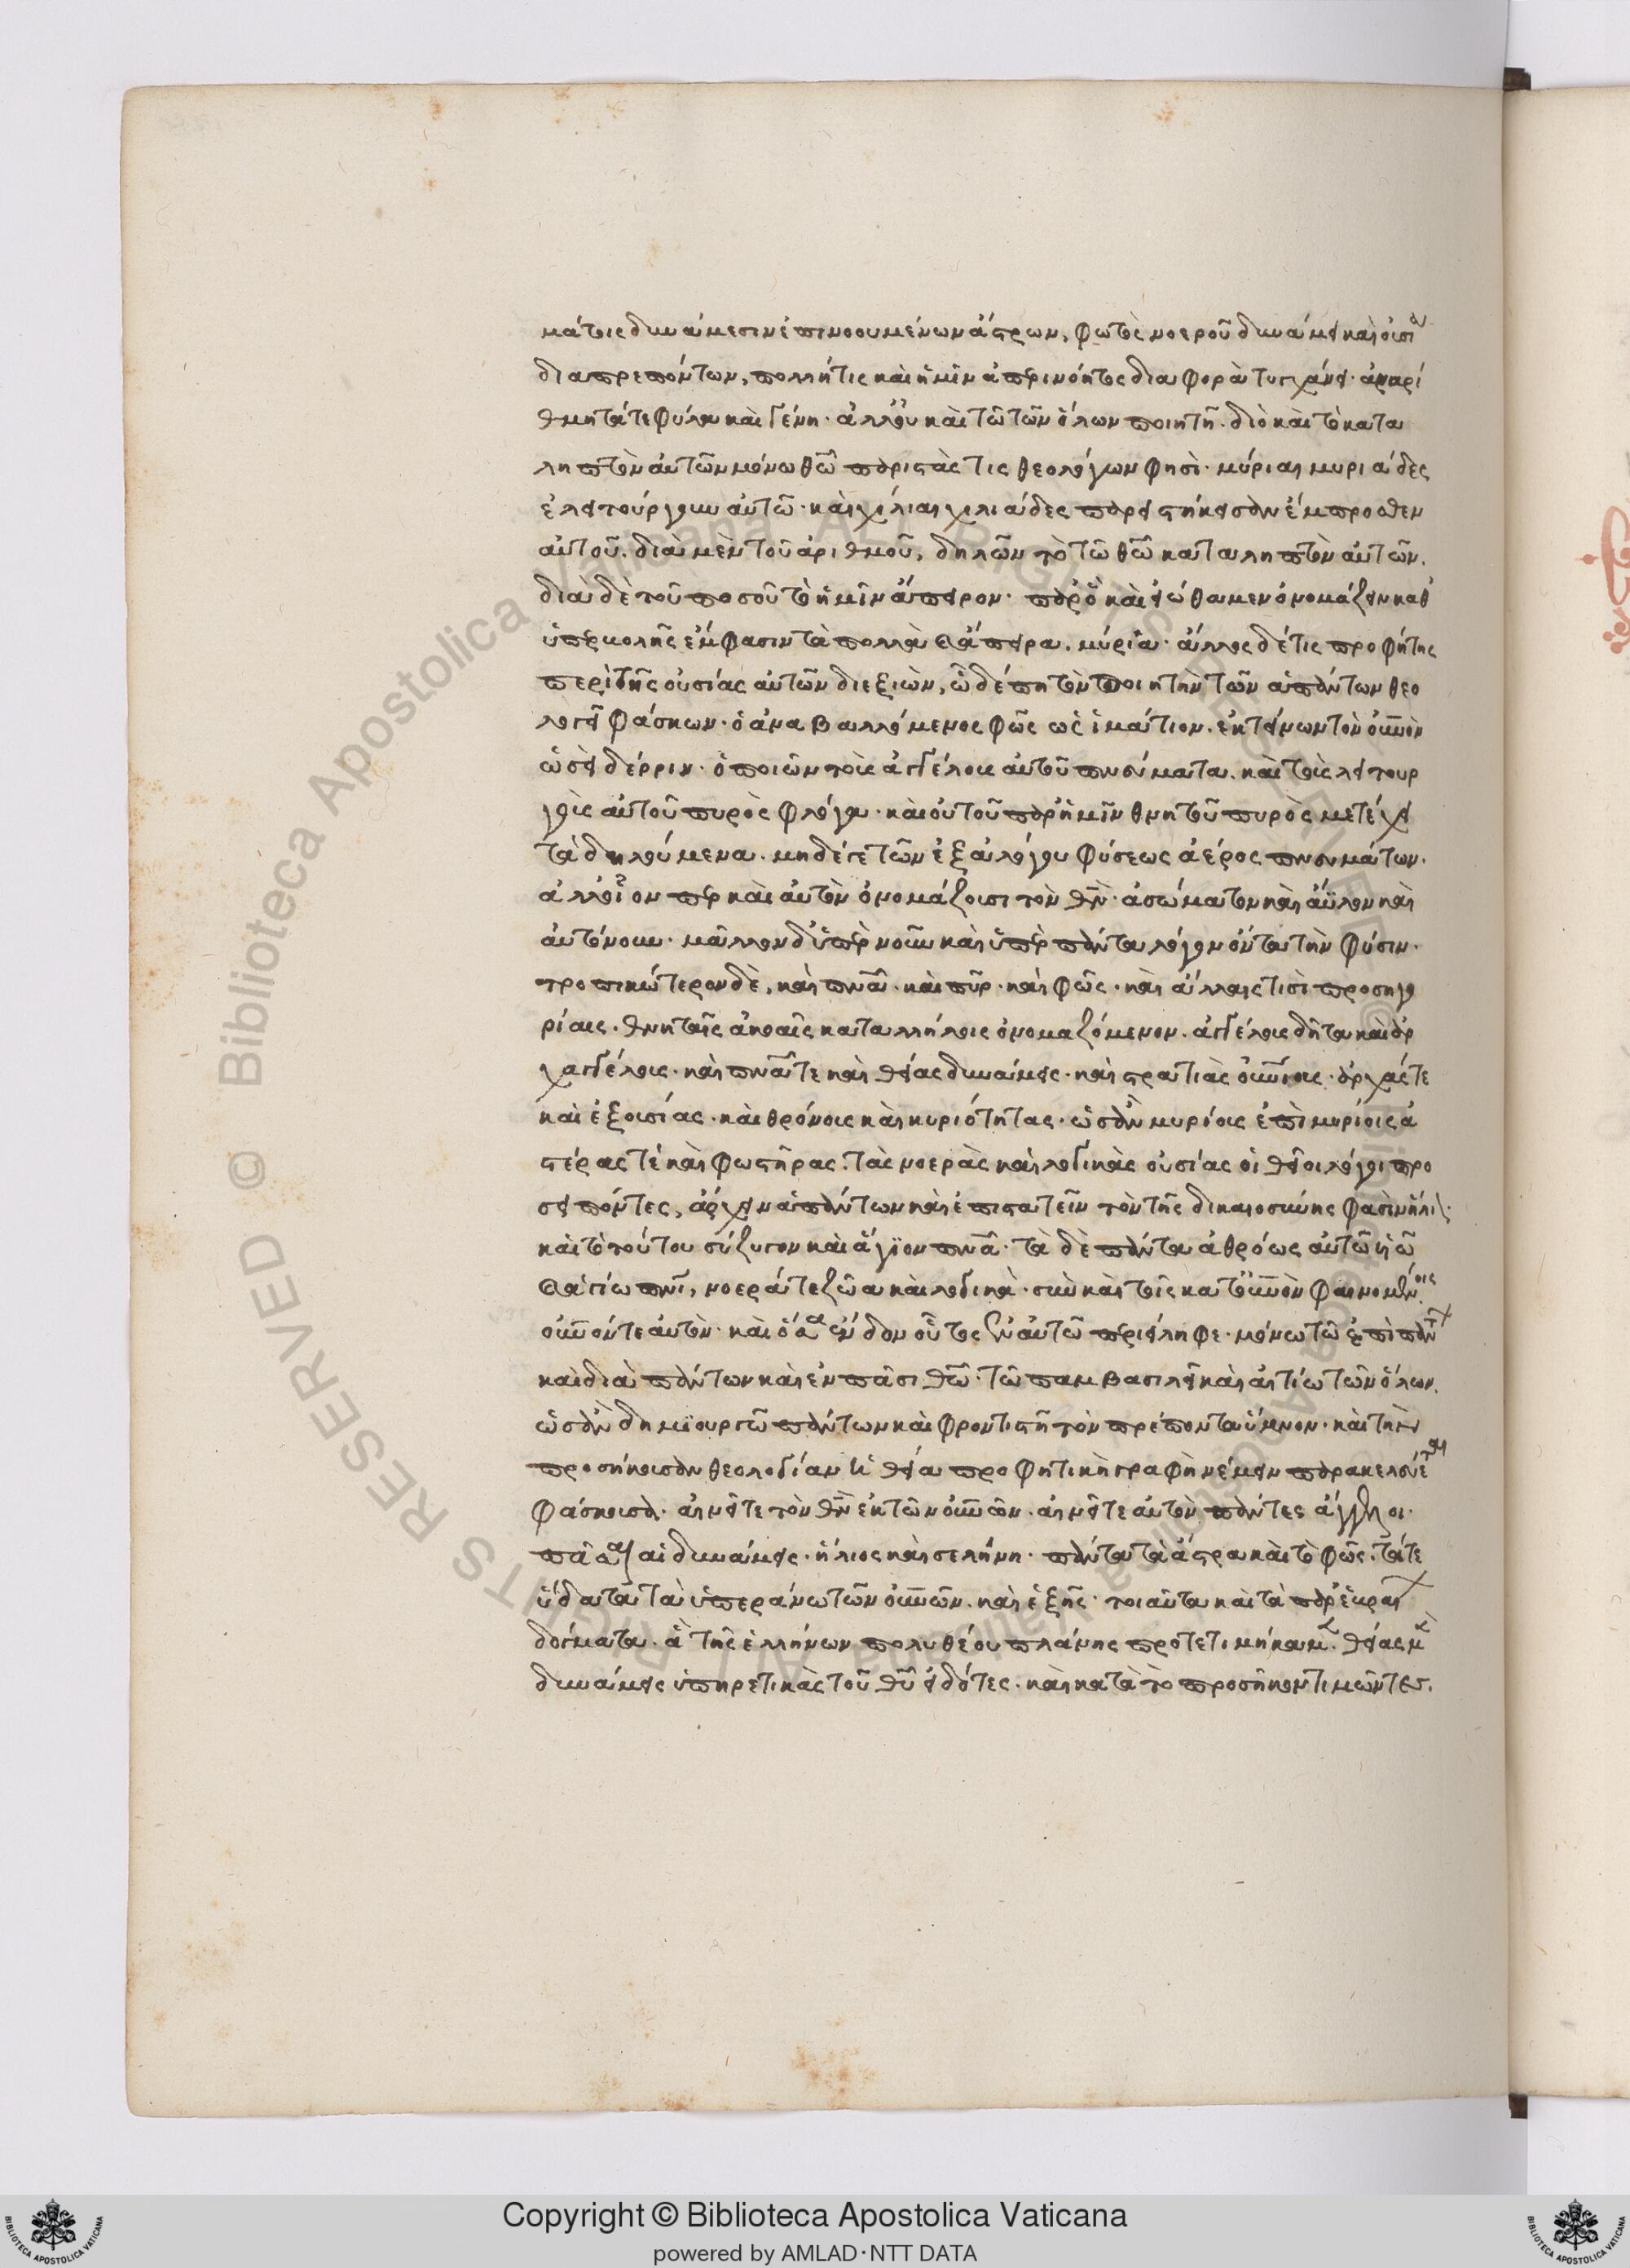 μάτοις δυνάμεσιν ἐπινοουμένων ἄστρων, φωτὸς νοεροῦ δυνάμει καὶ οὐσία
διαπρεπόντων, πολλή τις καὶ ἡμῖν ἀπερινόητος διαφορὰ τυγχάνει· ἀναρί
θμητά τε φύλα καὶ γένη· ἀλλ' οὐ καὶ τῶ τῶν ὅλων ποιητῆ. διὸ καὶ τὸ κατα
ληπτὸν αὐτῶν μόνω θῶ παριστὰς τις θεολόγων φησὶ· μύριαι μυριάδες
ἐλειτούργουν αὐτῶ· καὶ χίλιαι χιλιάδες παρειστήκεισαν ἔμπροσθεν
αὐτοῦ. διὰ μὲν τοῦ ἀριθμοῦ, δηλῶν τὸ τῶ θῶ καταληπτὸν αὐτῶν.
διὰ δὲ τοῦ ποσοῦ τὸ ἡμῖν ἄπειρον· παρ' ὃ καὶ εἰώθαμεν ὀνομάζειν καθ'
ὑπερβολῆς ἔμφασιν τὰ πολλὰ καὶ ἄπειρα. μύρια· ἄλλος δέ τις προφήτης
περὶ τῆς οὐσίας αὐτῶν διεξιὼν, ὧδέ πη τὸν ποιητὴν τῶν ἁπάντων θεο
λογεῖ φάσκων· ὁ ἀναβαλλόμενος φῶς ὡς ἱμάτιον. ἐκτείνων τὸν οὐνὸν
ὡσεὶ δέρριν· ὁ ποιῶν τοὺς ἀγγέλους αὐτοῦ πνεύματα. καὶ τοὺς λειτουρ
γοὺς αὐτοῦ πυρὸς φλόγα· καὶ οὐ τοῦ παρ' ἡμῖν θνητοῦ πυρὸς μετέχει
τὰ δηλούμενα. μηδέ γε τῶν ἐξ ἀλόγου φύσεως ἀέρος πνευμάτων.
ἀλλ' οἷον περ καὶ αὐτὸν ὀνομάζουσι τὸν θν· ἀσώματον καὶ ἄϋλον καὶ
αὐτόνουν· μᾶλλον δ' ὑπὲρ νοῦν καὶ ὑπὲρ πάντα λόγον ὄντα τὴν φύσιν·
τροπικώτερον δὲ, καὶ πνα· καὶ πῦρ· καὶ φῶς· καὶ ἄλλαις τισὶ προσηγο
ρίαις· θνηταῖς ἀκοαῖς καταλλήλοις ὀνομαζόμενον. ἀγγέλους δῆτα καὶ ἀρ
χαγγέλους· καὶ πνατε καὶ θείας δυνάμεις· καὶ στρατιὰς οὐνίους· ἀρχάς τε
καὶ ἐξουσίας· καὶ θρόνους καὶ κυριότητας· ὡσὰν μυρίους ἐπὶ μυρίοις ἀ
στέρας τὲ καὶ φωστῆρας. τὰς νοερὰς καὶ λογικὰς οὐσίας οἱ θεῖοι λόγοι προ
σειπόντες, ἄρχειν ἁπάντων καὶ ἐπιστατεῖν τὸν τῆς δικαιοσύνης φασὶν ἥλιον·
καὶ τὸ τούτου σύζυγον καὶ ἅγιον πνα· τὰ δὲ πάντα ἀθρόως αὐτῶ υἱῶ
καὶ ἁγίω πνι, νοερά τε ζῶα καὶ λογικὰ· σὺν καὶ τοῖς κατ' οὐνὸν φαινομένοις.
οὐνόν τε αὐτὸν· καὶ ὅσα ἔνδον οὗτος ἐν αὐτῶ περιείληφε· μόνω τῶ ἐπὶ πάντων
καὶ διὰ πάντων καὶ ἐν πᾶσι θῶ· τῶ παμβασιλεῖ καὶ αἰτίω τῶν ὅλων.
ὡσὰν δημιουργῶ πάντων καὶ φροντιστῆ τὸν πρέποντα ὕμνον· καὶ τὴν
προσήκουσαν θεολογίαν ἡ θεία προφητικὴ γραφὴ νέμειν παρακελεύεται
φάσκουσα· αἰνεῖτε τὸν θν ἐκ τῶν οὐνῶν. αἰνεῖτε αὐτὸν πάντες ἄγγελοι.
πᾶσαι αἱ δυνάμεις· ἥλιος καὶ σελήνη· πάντα τὰ ἄστρα καὶ τὸ φῶς. τά τε
ὕδατα τὰ ὑπεράνω τῶν οὐνῶν. καὶ ἑξῆς· τοιαῦτα καὶ τὰ παρ' ἑβραίων
δόγματα· ἃ τῆς ἑλλήνων πολυθέου πλάνης προτετιμήκαμεν. θείας μὲν
δυνάμεις ὑπηρετικὰς τοῦ θυ εἰδότες· καὶ κατὰ τὸ προσῆκον τιμῶντες.